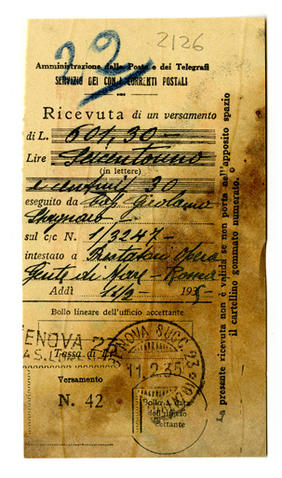 22 2126
Amministrazione delle Poste e dei Telegrafi
SERVIZIO DEI CONTI CORRENTI POSTALI
Ricevuta di un versamento
di L. 601,30
Lire Seicentouno
(in lettere)
e centesimi 30
eseguito da Cap. Girolamo
sul c/c N. 1/3247
intestato a Prestatori Opera
Gente di Mare - Roma
Addì 11/2 1935
Bollo lineare dell'ufficio accettante
GENOVA 23
Tassa di L.
GENOVA SUCC. 23
11.2.35
Versamento
N. 42
Bollo a data
dell'ufficio
accettante
La presente ricevuta non è valida se non porta nell'apposito spazio
il cartellino gommato numerato.